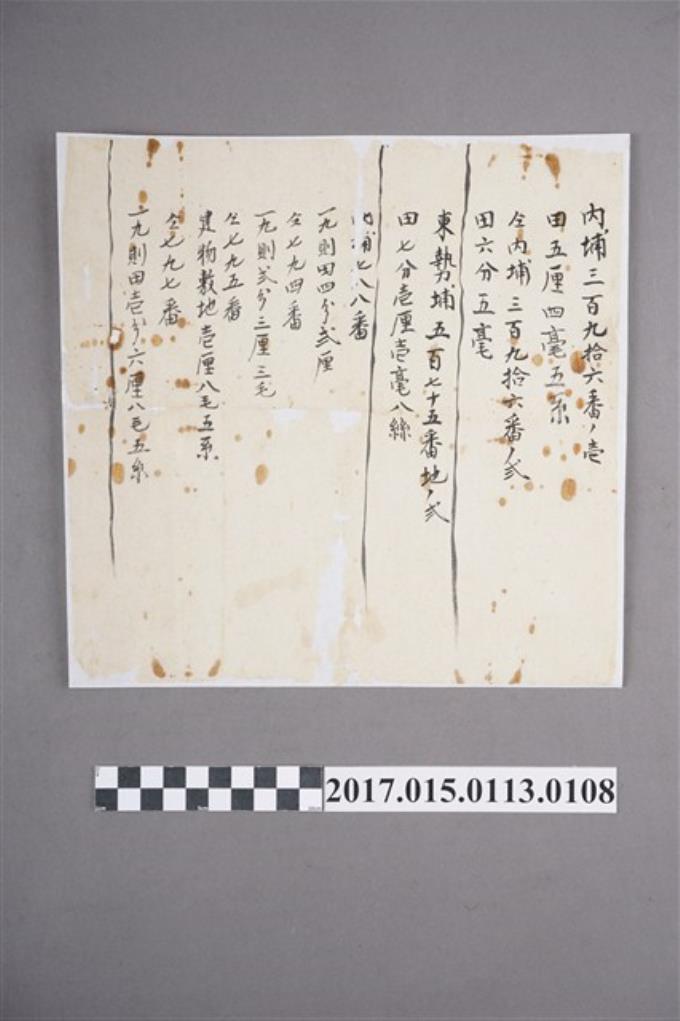 内埔三百九拾六番ノ壱
田五厘四毫五糸
仝内埔三百九拾六番ノ弐
田六分五毫
東勢埔五百七十五番地ノ弐
田七分壱厘壱毫八絲
内埔七八八番
一九則田四分弐厘
仝七九四番
一九則弐分三厘三毛
仝七九五番
建物敷地壱厘八毛五糸
仝七九七番
一九則田壱分六厘八毛五糸
2017.015.0113.0108